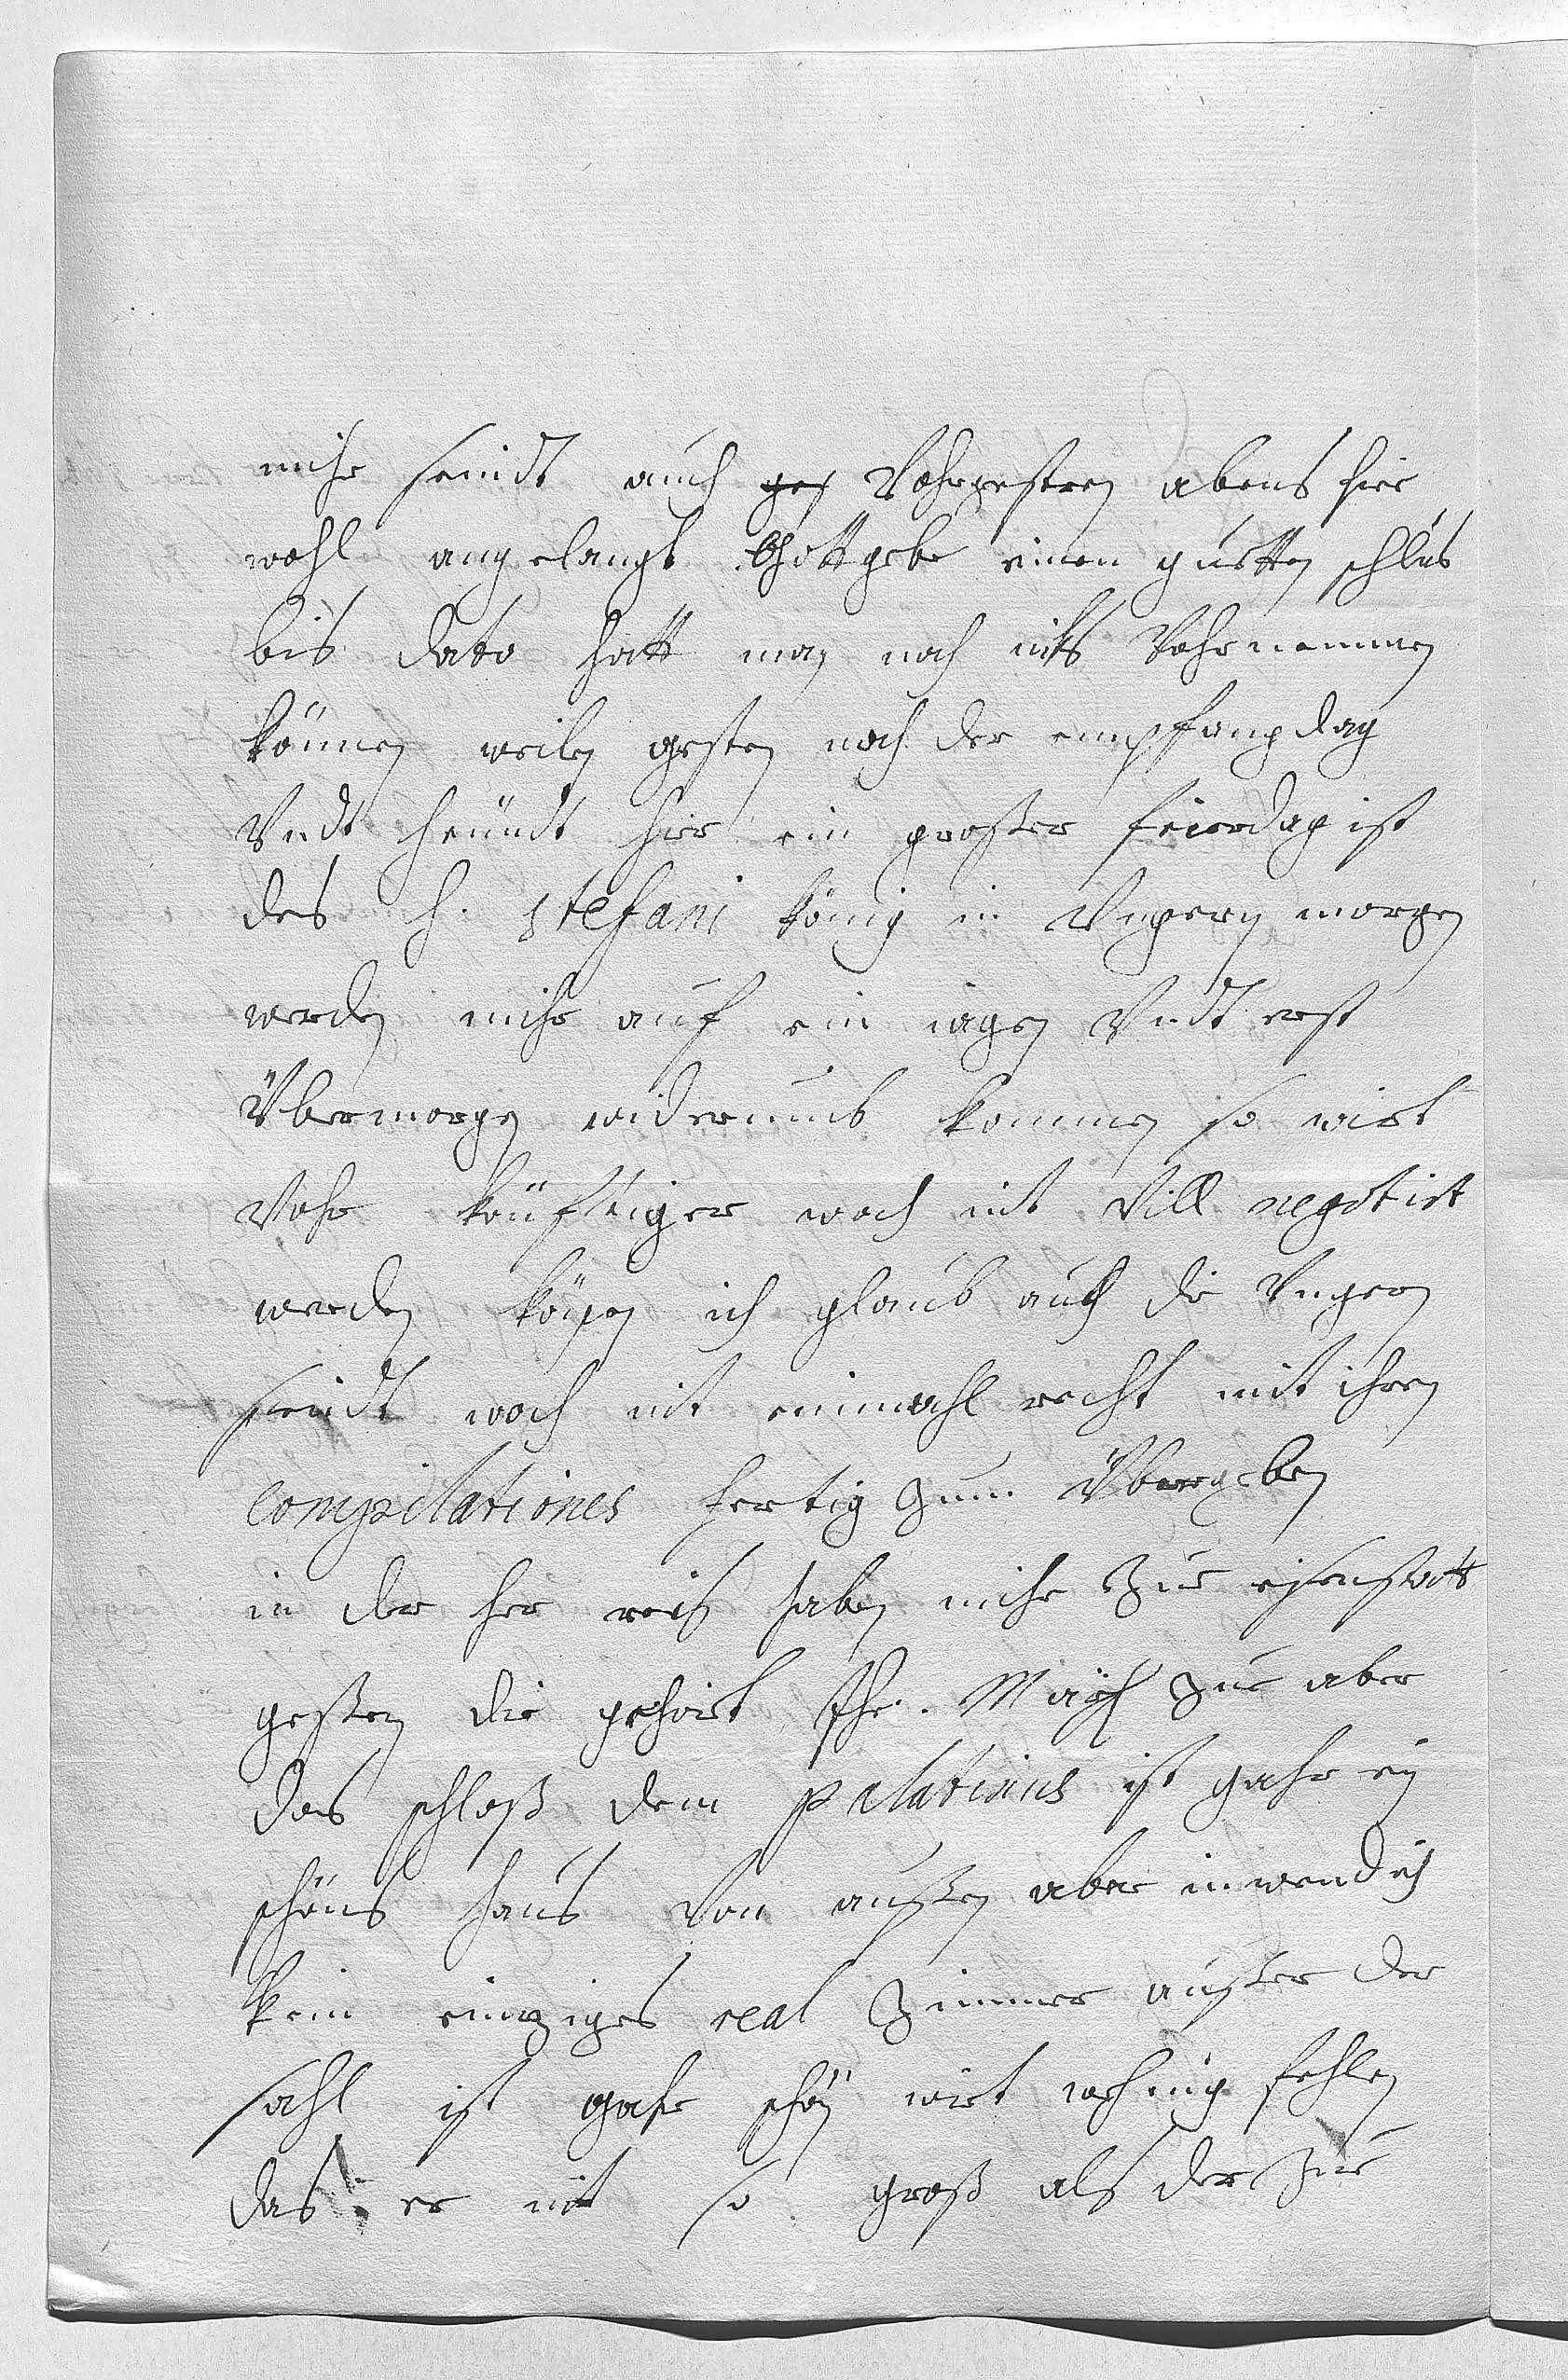 mihr seindt auch ges Vohrgestren abens hier
wohl angelangt Ghottgebe einen gutten schlus
bis dato hatt man noch niks Vohrnemmen
können weilen gesten noch der empfangdag
Vndt heündt hier ein großer feierdag ist
des h. stefani könig in Vngern morgen
werden mihr auf ein iagen Vndt erst
Übermorgen widerumb kommen so wirt
Vohr künftiger woch nit Vill negotirt
werden können ich glaub auch die Vngern
seindt noch nit einmahl recht mit ihren
compilationes fertig zum Übergeben
in der her reis haben mihr zue eisenstatt
geßen die gehört Ihr. Maÿ zue aber
das schloß dem palatinus ist gahr ein
schöns haus Von außen aber inwendich
kein einziges real zimmer außer der
sahl ist gahr schön wirt wehnig fehlen
das er nit so groß als der zue